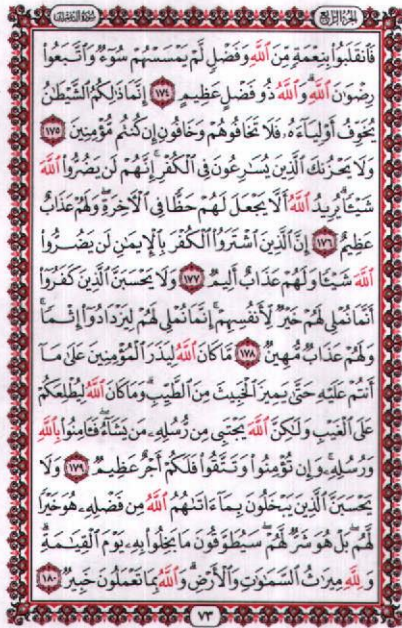 سورة آل عمران
الجزء الرابع
فَانقَلَبُوا۟ بِنِعْمَةٍ مِّنَ ٱللَّهِ وَفَضْلٍ لَّمْ يَمْسَسْهُمْ سُوٓءٌ وَٱتَّبَعُوا۟
رِضْوَٰنَ ٱللَّهِ ۗ وَٱللَّهُ ذُو فَضْلٍ عَظِيمٍ ١٧٤ إِنَّمَا ذَٰلِكُمُ ٱلشَّيْطَٰنُ
يُخَوِّفُ أَوْلِيَآءَهُۥ فَلَا تَخَافُوهُمْ وَخَافُونِ إِن كُنتُم مُّؤْمِنِينَ ١٧٥
وَلَا يَحْزُنكَ ٱلَّذِينَ يُسَٰرِعُونَ فِى ٱلْكُفْرِ ۚ إِنَّهُمْ لَن يَضُرُّوا۟ ٱللَّهَ
شَيْـًٔا ۗ يُرِيدُ ٱللَّهُ أَلَّا يَجْعَلَ لَهُمْ حَظًّا فِى ٱلْءَاخِرَةِ ۖ وَلَهُمْ عَذَابٌ
عَظِيمٌ ١٧٦ إِنَّ ٱلَّذِينَ ٱشْتَرَوُا۟ ٱلْكُفْرَ بِٱلْإِيمَٰنِ لَن يَضُرُّوا۟
ٱللَّهَ شَيْـًٔا وَلَهُمْ عَذَابٌ أَلِيمٌ ١٧٧ وَلَا يَحْسَبَنَّ ٱلَّذِينَ كَفَرُوٓا۟
أَنَّمَا نُمْلِى لَهُمْ خَيْرٌ لِّأَنفُسِهِمْ ۚ إِنَّمَا نُمْلِى لَهُمْ لِيَزْدَادُوٓا۟ إِثْمًا ۚ
وَلَهُمْ عَذَابٌ مُّهِينٌ ١٧٨ مَّا كَانَ ٱللَّهُ لِيَذَرَ ٱلْمُؤْمِنِينَ عَلَىٰ مَآ
أَنتُمْ عَلَيْهِ حَتَّىٰ يَمِيزَ ٱلْخَبِيثَ مِنَ ٱلطَّيِّبِ ۗ وَمَا كَانَ ٱللَّهُ لِيُطْلِعَكُمْ
عَلَى ٱلْغَيْبِ وَلَٰكِنَّ ٱللَّهَ يَجْتَبِى مِن رُّسُلِهِۦ مَن يَشَآءُ ۖ فَـَٔامِنُوا۟ بِٱللَّهِ
وَرُسُلِهِۦ ۚ وَإِن تُؤْمِنُوا۟ وَتَتَّقُوا۟ فَلَكُمْ أَجْرٌ عَظِيمٌ ١٧٩ وَلَا
يَحْسَبَنَّ ٱلَّذِينَ يَبْخَلُونَ بِمَآ ءَاتَىٰهُمُ ٱللَّهُ مِن فَضْلِهِۦ هُوَ خَيْرًا
لَّهُم ۖ بَلْ هُوَ شَرٌّ لَّهُمْ ۖ سَيُطَوَّقُونَ مَا بَخِلُوا۟ بِهِۦ يَوْمَ ٱلْقِيَٰمَةِ ۗ
وَلِلَّهِ مِيرَٰثُ ٱلسَّمَٰوَٰتِ وَٱلْأَرْضِ ۗ وَٱللَّهُ بِمَا تَعْمَلُونَ خَبِيرٌ ١٨٠
٧٣